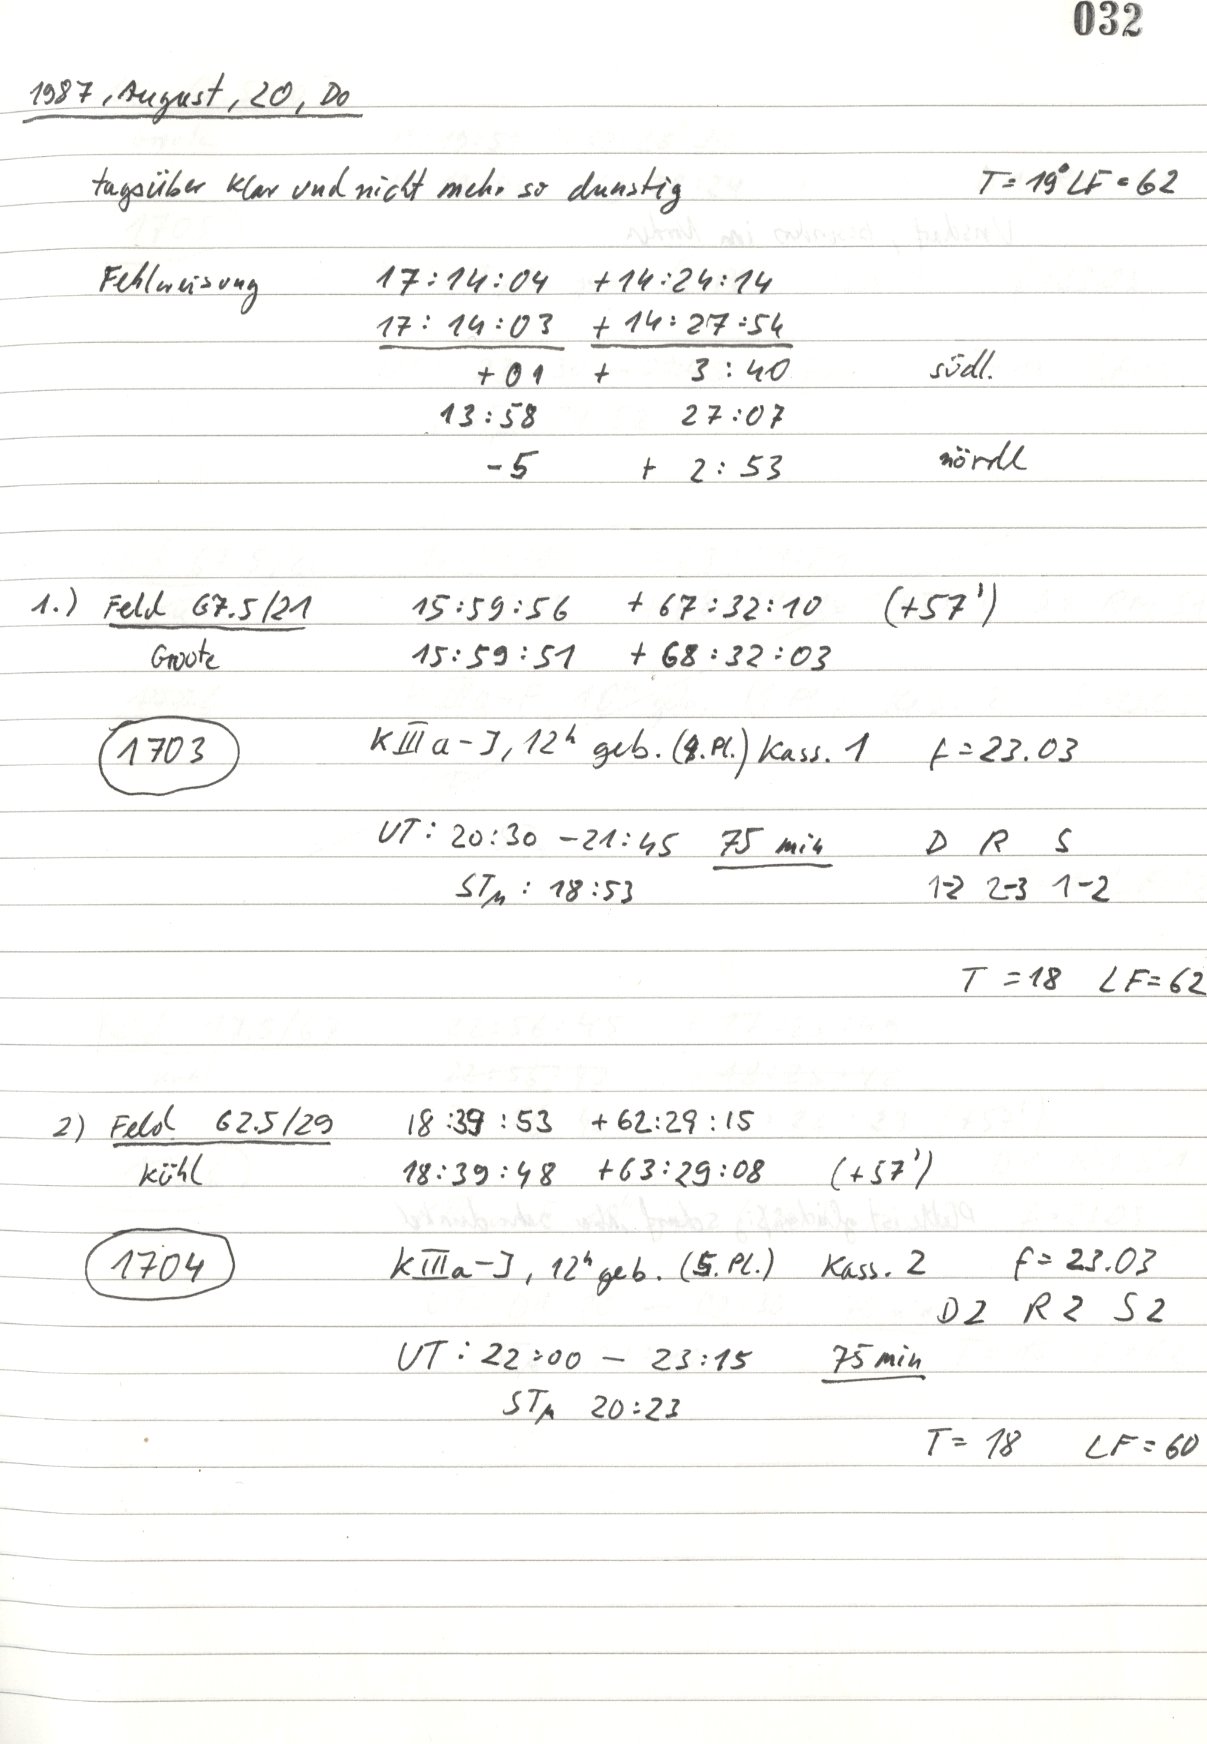 032
1987, August, 20, Do
tagsüber klar und nicht mehr so dunstig T = 19° LF = 62
Fehlweisung 17:14:04 +14:24:14
17:14:03 +14:27:54
+01 + 3:40 südl.
13:58 27:07
-5 + 2:53 nördl
1.) Feld 67.5/21 15:59:56 +67:32:10 (+57')
Groote 15:59:51 +68:32:03
1703 KIIIa-J, 12h geb. (4. Pl.) Kass. 1 f = 23.03
UT: 20:30 - 21:45 75 min D R S
STM: 18:53 1-2 2-3 1-2
T = 18 LF = 62
2) Feld 62.5/29 18:39:53 +62:29:15
Kühl 18:39:48 +63:29:08 (+57')
1704 KIIIa-J, 12h geb. (5. Pl.) Kass. 2 f = 23.03
D2 R2 S2
UT: 22:00 - 23:15 75 min
STM 20:23
T = 18 LF = 60